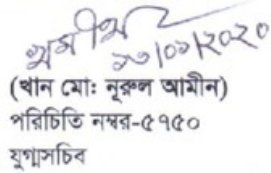 ১৩/০১/২০২০
(খান মোঃ নূরুল আমীন)
পরিচিতি নম্বর-৫৭৫০
যুগ্মসচিব